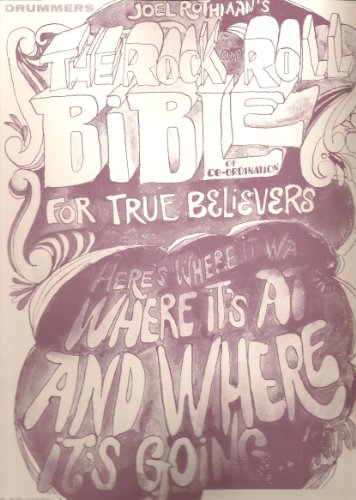 DRUMMERS
JOEL ROTHMAN'S
THE ROCK AND ROLL
BIBLE
OF
CO-ORDINATION
FOR TRUE BELIEVERS
HERE'S WHERE IT WA
WHERE IT'S AT
AND WHERE
IT'S GOING